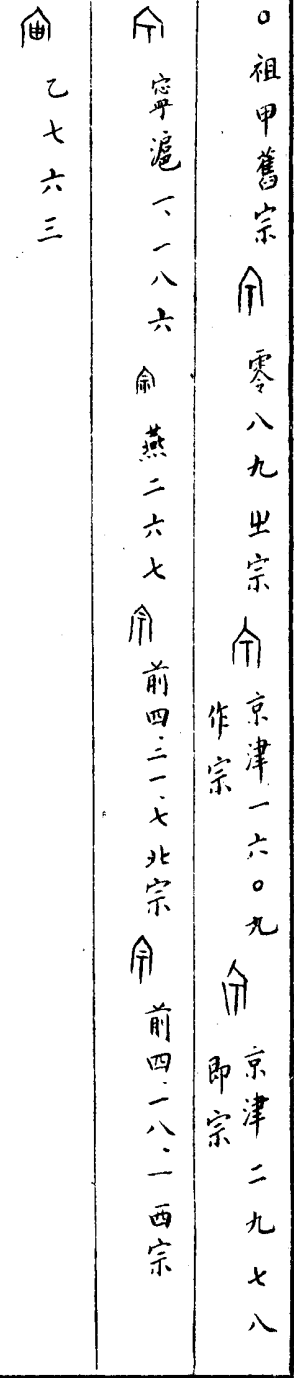 〇祖甲舊宗 零八九㞢宗 京津一六〇九作宗 京津二九七八即宗
寧滬一、一八六 燕二六七 前四、三一、七北宗 前四、一八、一西宗
乙七六三